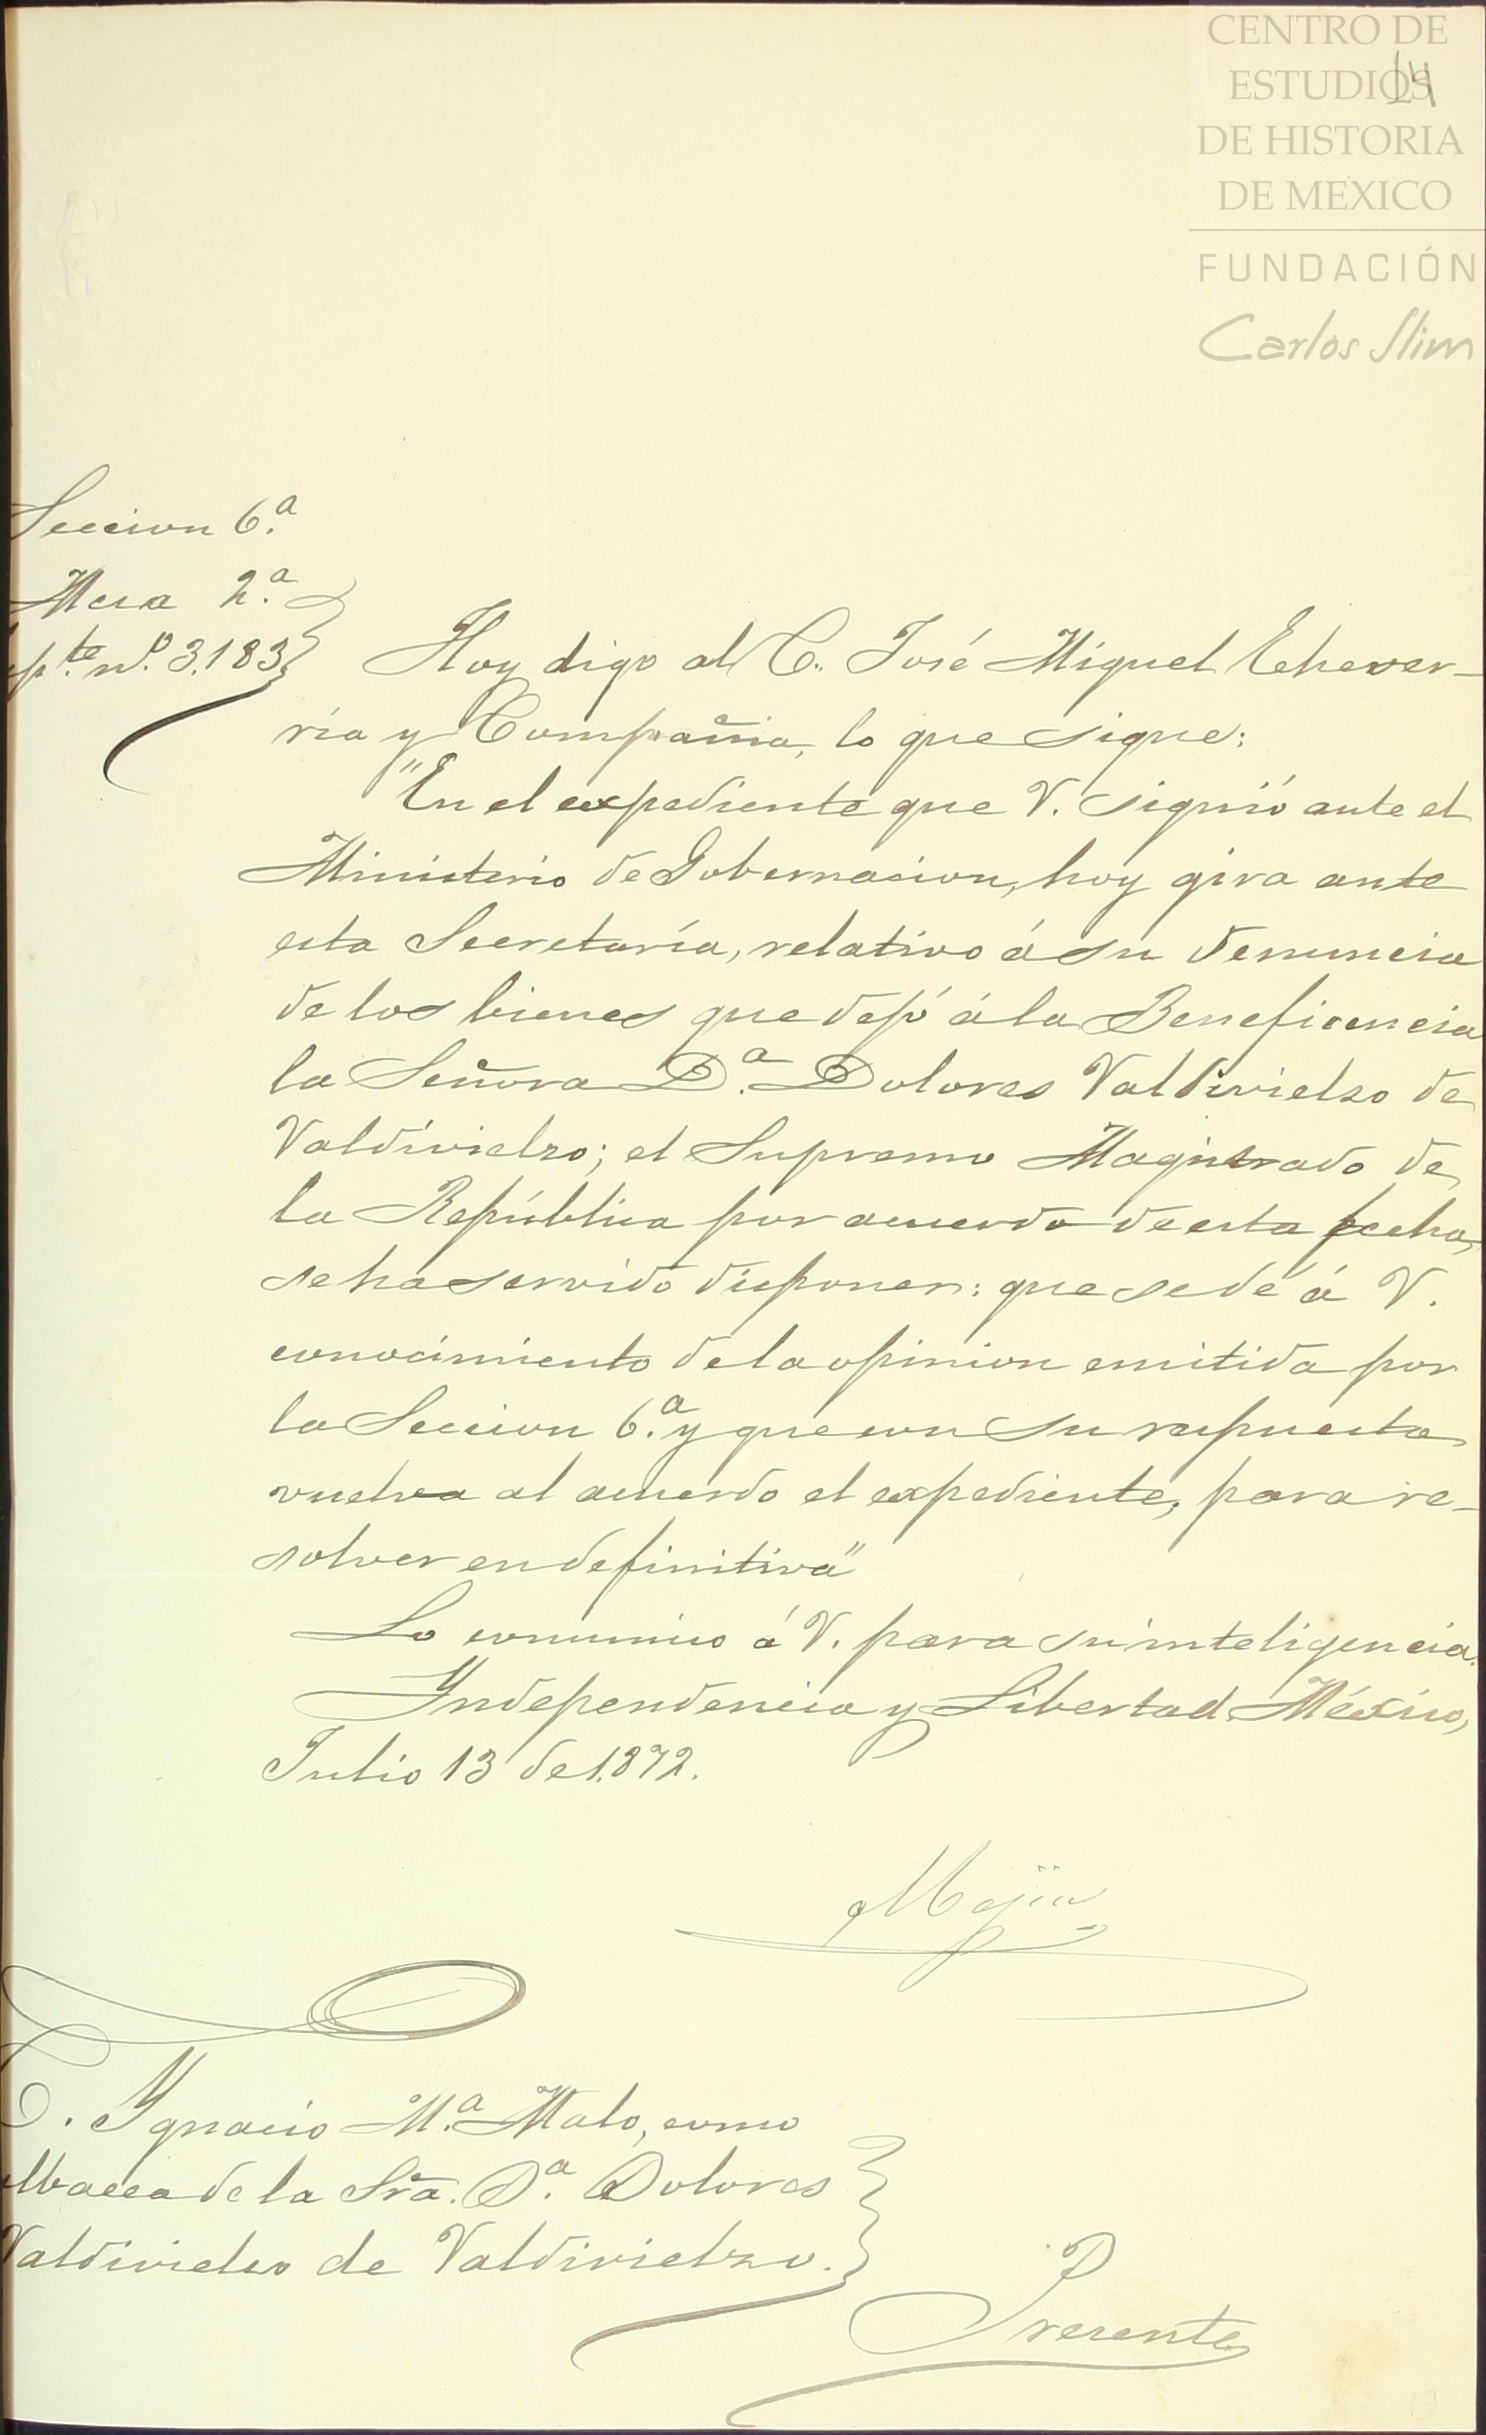 CENTRO DE
ESTUDIOS
DE HISTORIA
DE MÉXICO
FUNDACIÓN
Carlos Slim
Seccion 6.ª
Mesa 2.ª
pte. nº. 3.183
Hoy digo al C. José Miguel Echever-
ría y Compañia, lo que sigue:
"En el expediente que V. siguió ante el
Ministerio de Gobernacion, hoy gira ante
esta Secretaría, relativo á su denuncia
de los bienes que dejó á la Beneficencia
la Señora D.ª Dolores Valdivielso de
Valdivielso; el Supremo Magistrado de
la República por acuerdo de esta fecha,
se ha servido disponer: que se dé á V.
conocimiento de la opinion emitida por
la Seccion 6.ª y que con su respuesta
vuelva al acuerdo el expediente, para re-
solver en definitiva"
Lo comunico á V. para su inteligencia.
Yndependencia y Libertad. México,
Julio 13 de 1.872.
Mejía
C. Ygnacio M.ª Malo, como
albacea de la Sra. D.ª Dolores
Valdivielso de Valdivielso.
Presente